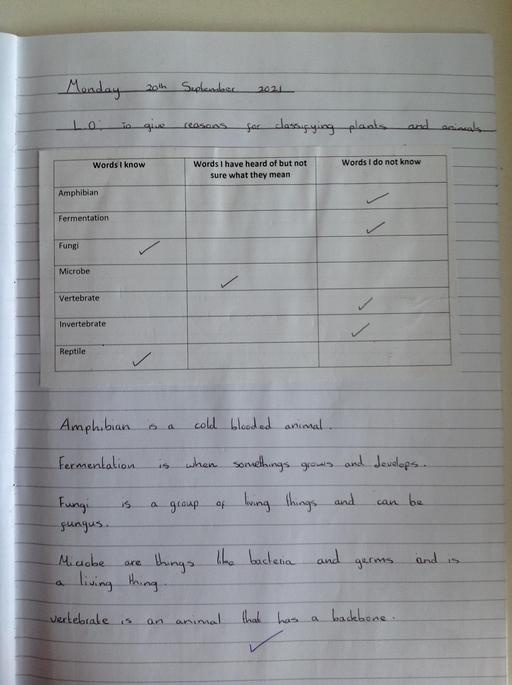 Monday 20th September 2021
L.O: To give reasons for classifying plants and animals
Words I know Words I have heard of but not sure what they mean Words I do not know
Amphibian ✓
Fermentation ✓
Fungi ✓
Microbe ✓
Vertebrate ✓
Invertebrate ✓
Reptile ✓
Amphibian is a cold blooded animal.
Fermentation is when somethings grows and develops.
Fungi is a group of living things and can be
fungus.
Microbe are things like bacteria and germs and is
a living thing.
vertebrate is an animal that has a backbone.